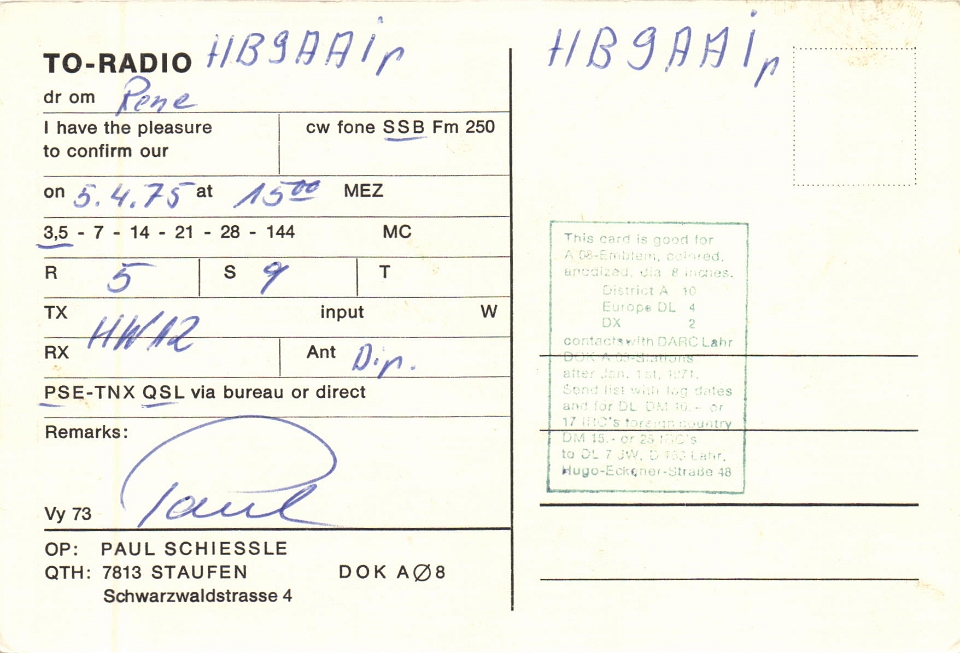 TO-RADIO HB9AAI p
dr om Rene
I have the pleasure
to confirm our
cw fone SSB Fm 250
on 5.4.75 at 15⁰⁰ MEZ
3,5 - 7 - 14 - 21 - 28 - 144 MC
R 5 S 9 T
TX HW12 input W
RX Ant Dip.
PSE-TNX QSL via bureau or direct
Remarks:
Vy 73 Paul
OP: PAUL SCHIESSLE
QTH: 7813 STAUFEN DOK AØ8
Schwarzwaldstrasse 4
HB9AAI p
This card is good for
A 08-Emblem, colored,
anodized, dia 8 inches.
District A 10
Europe DL 4
DX 2
contacts with DARC Lahr
DOK A 08-Stations
after Jan. 1st, 1971.
Send list with log dates
and for DL DM 10.- or
17 IRC's foreign country
DM 15.- or 25 IRC's
to DL 7 JW, D Lahr,
Hugo-Eckener-Straße 48